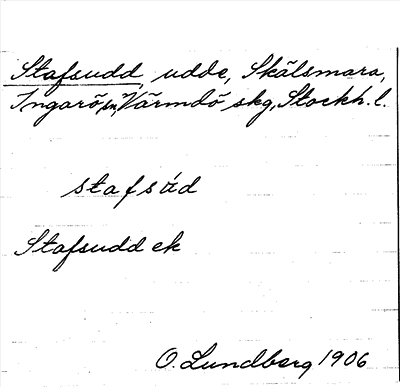 Stafsudd, udde, Skälsmara,
Ingarö sn, Värmdö skg, Stockh. l.
stafsùd
Stafsudd ek
O. Lundberg 1906